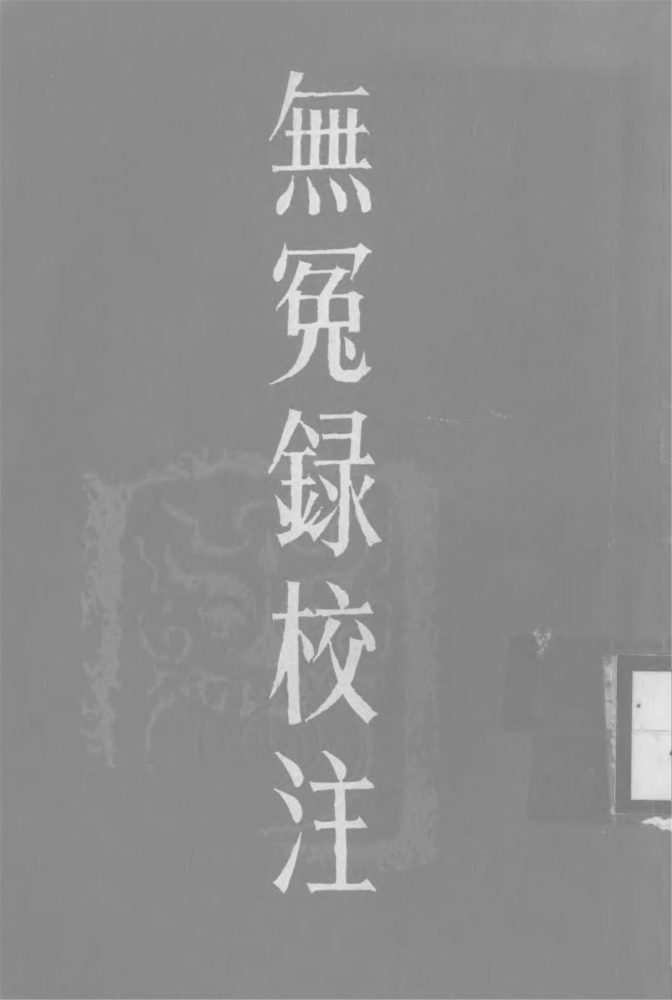 無冤録校注